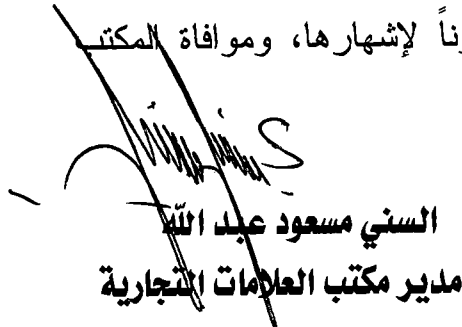 ناً لإشهارها، وموافاة المكتب
السني مسعود عبد الله
مدير مكتب العلامات التجارية